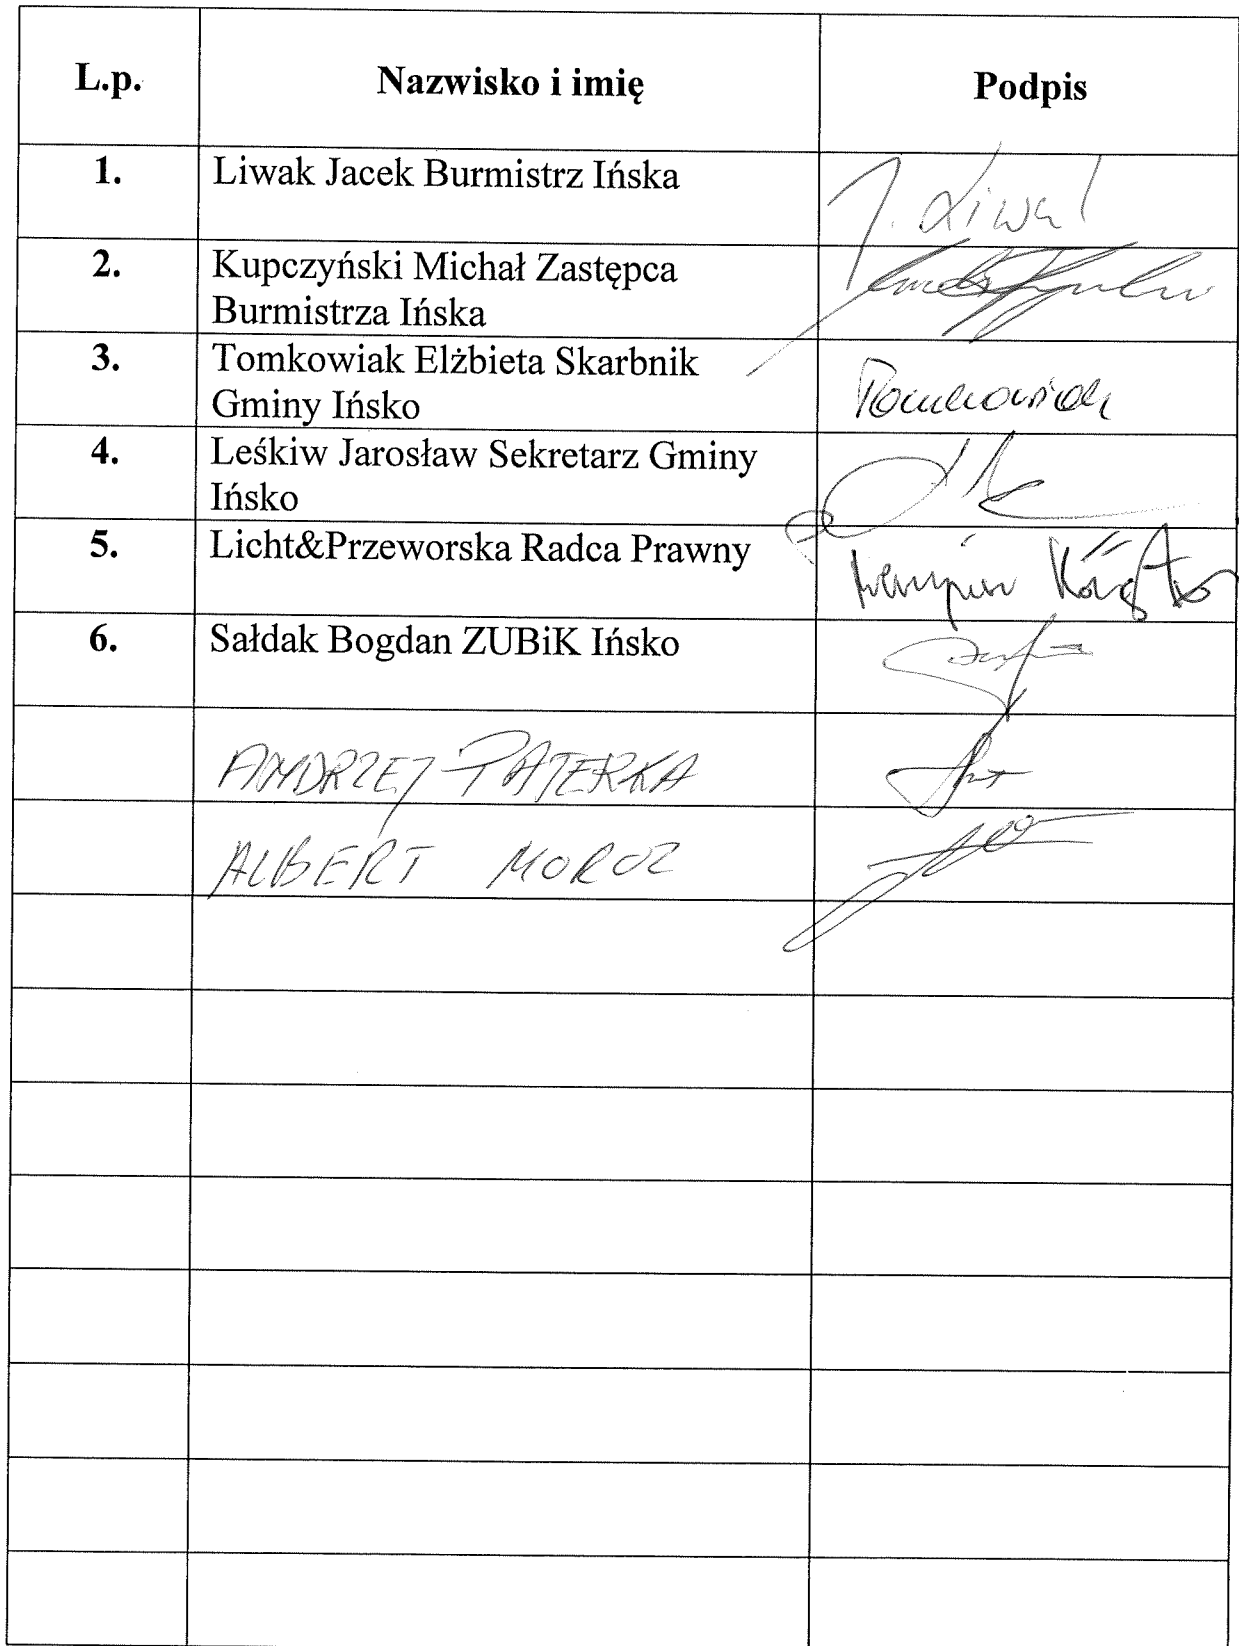 L.p. Nazwisko i imię Podpis
1. Liwak Jacek Burmistrz Ińska J. Liwak
2. Kupczyński Michał Zastępca
Burmistrza Ińska
3. Tomkowiak Elżbieta Skarbnik
Gminy Ińsko Tomkowiak
4. Leśkiw Jarosław Sekretarz Gminy
Ińsko
5. Licht&Przeworska Radca Prawny
6. Sałdak Bogdan ZUBiK Ińsko
ANDRZEJ PATERKA
ALBERT MOROZ